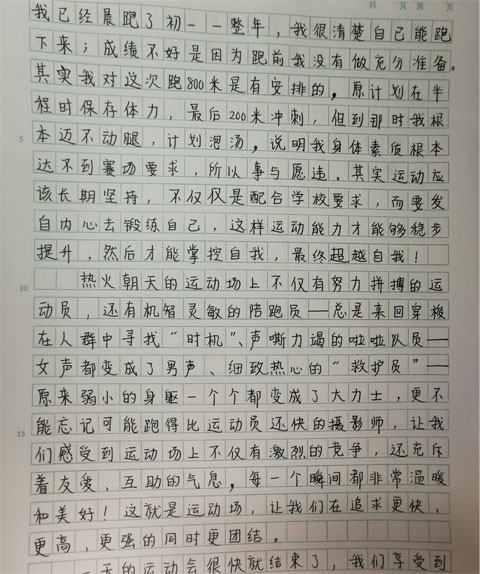 共 页 第 页
我已经晨跑了初一一整年，我很清楚自己能跑
下来；成绩不好是因为跑前我没有做充分准备。
其实我对这次跑800米是有安排的，原计划在半
程时保存体力，最后200米冲刺，但到那时我根
5 本迈不动腿，计划泡汤，说明我身体素质根本
达不到赛场要求，所以事与愿违。其实运动应
该长期坚持，不仅仅是配合学校要求，而要发
自内心去锻练自己，这样运动能力才能够稳步
提升，然后才能掌控自我，最终超越自我！
10 热火朝天的运动场上不仅有努力拼搏的运
动员，还有机智灵敏的陪跑员——总是来回穿梭
在人群中寻找“时机”、声嘶力竭的啦啦队员——
女声都变成了男声、细致热心的“救护员”——
原来弱小的身躯一个个都变成了大力士，更不
15 能忘记可能跑得比运动员还快的摄影师，让我
们感受到运动场上不仅有激烈的竞争，还充斥
着友爱、互助的气息，每一个瞬间都非常温暖
和美好！这就是运动场，让我们在追求更快、
更高、更强的同时更团结。
一天的运动会很快就结束了，我们享受到